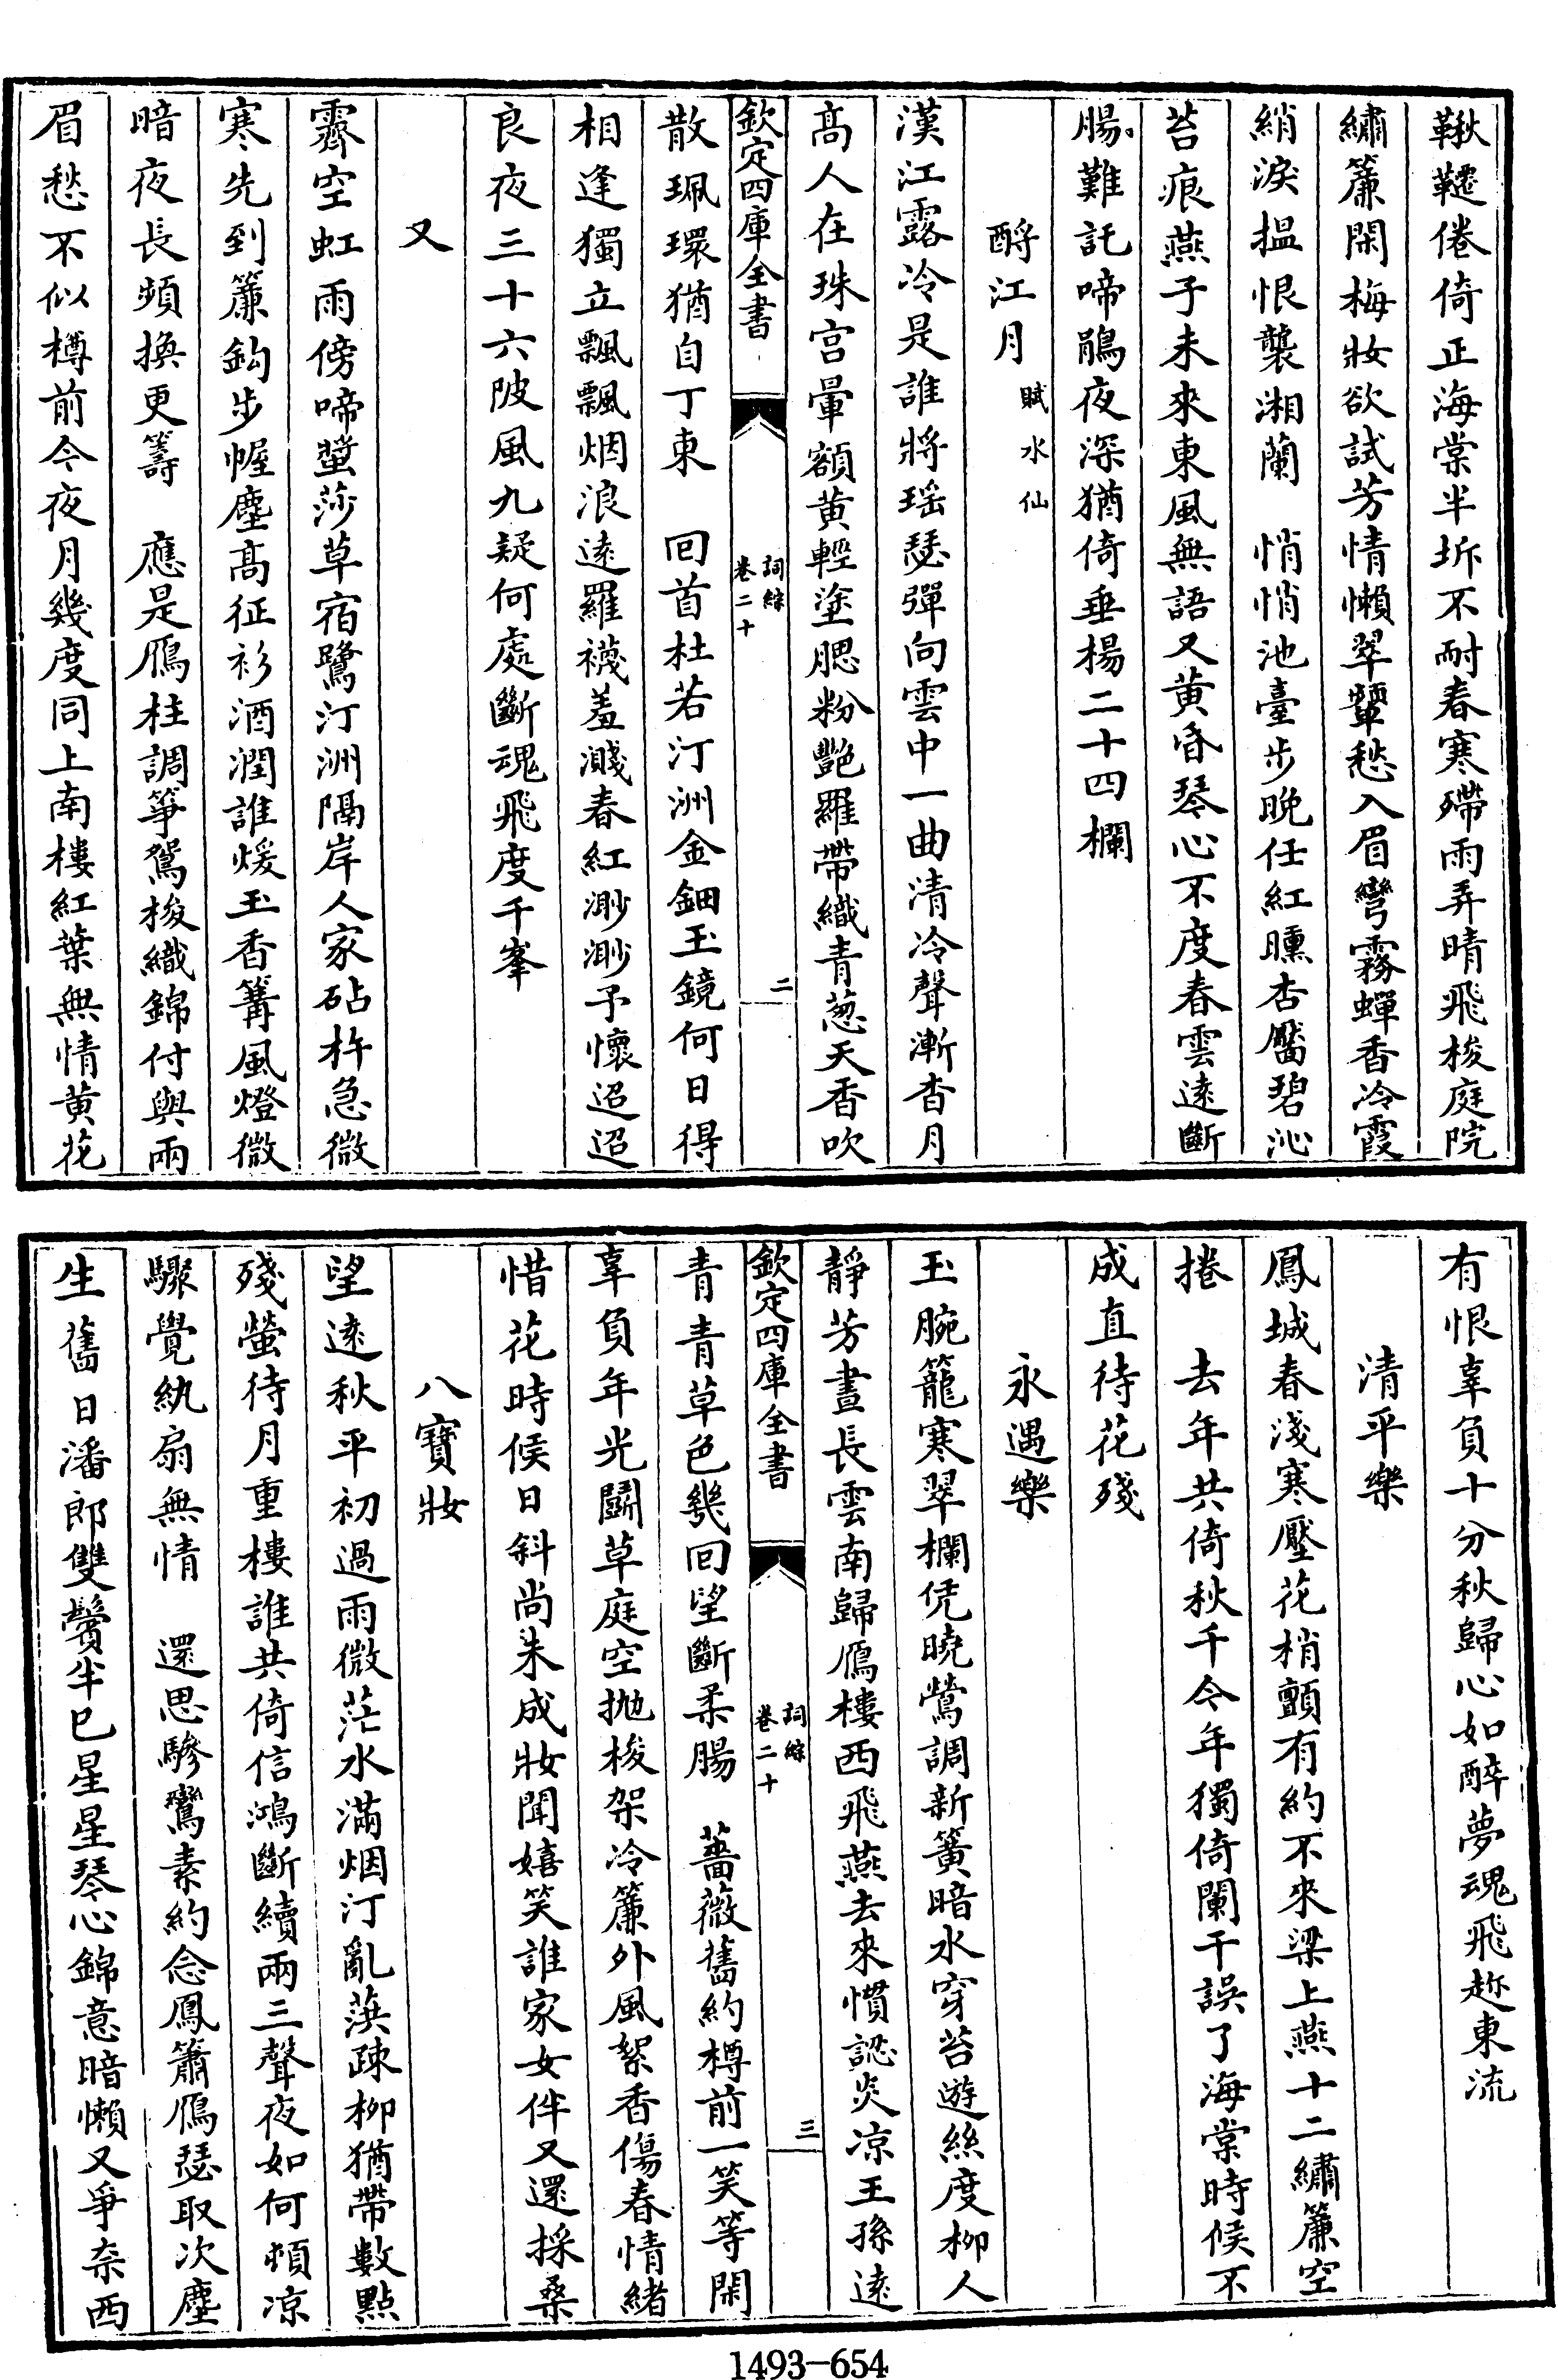 鞦韆倦倚正海棠半坼不耐春寒殢雨弄晴飛梭庭院
繡簾閑梅妝欲試芳情懶翠顰愁入眉彎霧蟬香冷霞
綃淚搵恨襲湘蘭　悄悄池臺步晚任紅曛杏靨碧沁
苔痕燕子未來東風無語又黄昏琴心不度春雲逺斷
腸難託啼鵑夜深猶倚垂楊二十四欄
酹江月賦水仙
漢江露冷是誰將瑶瑟彈向雲中一曲清泠聲漸杳月
髙人在珠宫暈額黄輕塗腮粉艷羅帶織青葱天香吹
欽定四庫全書　詞綜卷二十　二
散珮環猶自丁東　回首杜若汀洲金鈿玉鏡何日得
相逢獨立飄飄烟浪逺羅襪羞濺春紅渺渺予懷迢迢
良夜三十六陂風九疑何處斷魂飛度千峯
又
霽空虹雨傍啼螿莎草宿鷺汀洲隔岸人家砧杵急微
寒先到簾鈎步幄塵髙征衫酒潤誰煖玉香篝風燈微
暗夜長頻換更籌　應是鴈柱調箏鴛梭織錦付與兩
眉愁不似樽前今夜月幾度同上南樓紅葉無情黄花
有恨辜負十分秋歸心如醉夢魂飛趂東流
清平樂
鳳城春淺寒壓花梢顫有約不來梁上燕十二繡簾空
捲　去年共倚秋千今年獨倚闌干誤了海棠時候不
成直待花殘
永遇樂
玉腕籠寒翠欄凭曉鶯調新簧暗水穿苔遊絲度柳人
靜芳晝長雲南歸鴈樓西飛燕去來慣認炎凉王孫逺
欽定四庫全書　詞綜卷二十　三
青青草色幾回望斷柔腸　薔薇舊約樽前一笑等閑
辜負年光鬭草庭空抛梭架冷簾外風絮香傷春情緒
惜花時候日斜尚未成妝聞嬉笑誰家女伴又還採桑
八寶妝
望逺秋平初過雨微茫水滿烟汀亂葓疎柳猶帶數點
殘螢待月重樓誰共倚信鴻斷續兩三聲夜如何頓凉
驟覺紈扇無情　還思驂鸞素約念鳳簫鴈瑟取次塵
生舊日潘郎雙鬢半已星星琴心錦意暗懶又爭奈西
1493-654